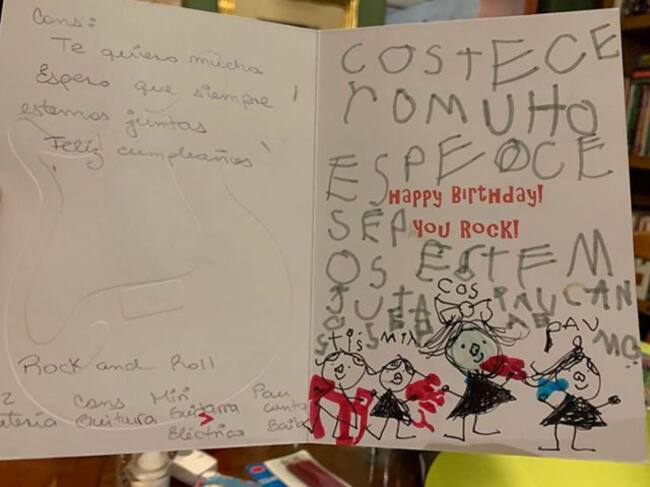 Cons:
Te quiero mucho
Espero que siempre
estemos juntas
Feliz cumpleaños
Rock and Roll
Cons Miri Pau
Guitarra Guitarra Canta
Eléctrica Baila
COSTECE
ROMUHO
ESPEOCE
Happy Birthday!
SEP You Rock!
OS ESTEM
JUTA PAU CAN
COS
MIR PAU